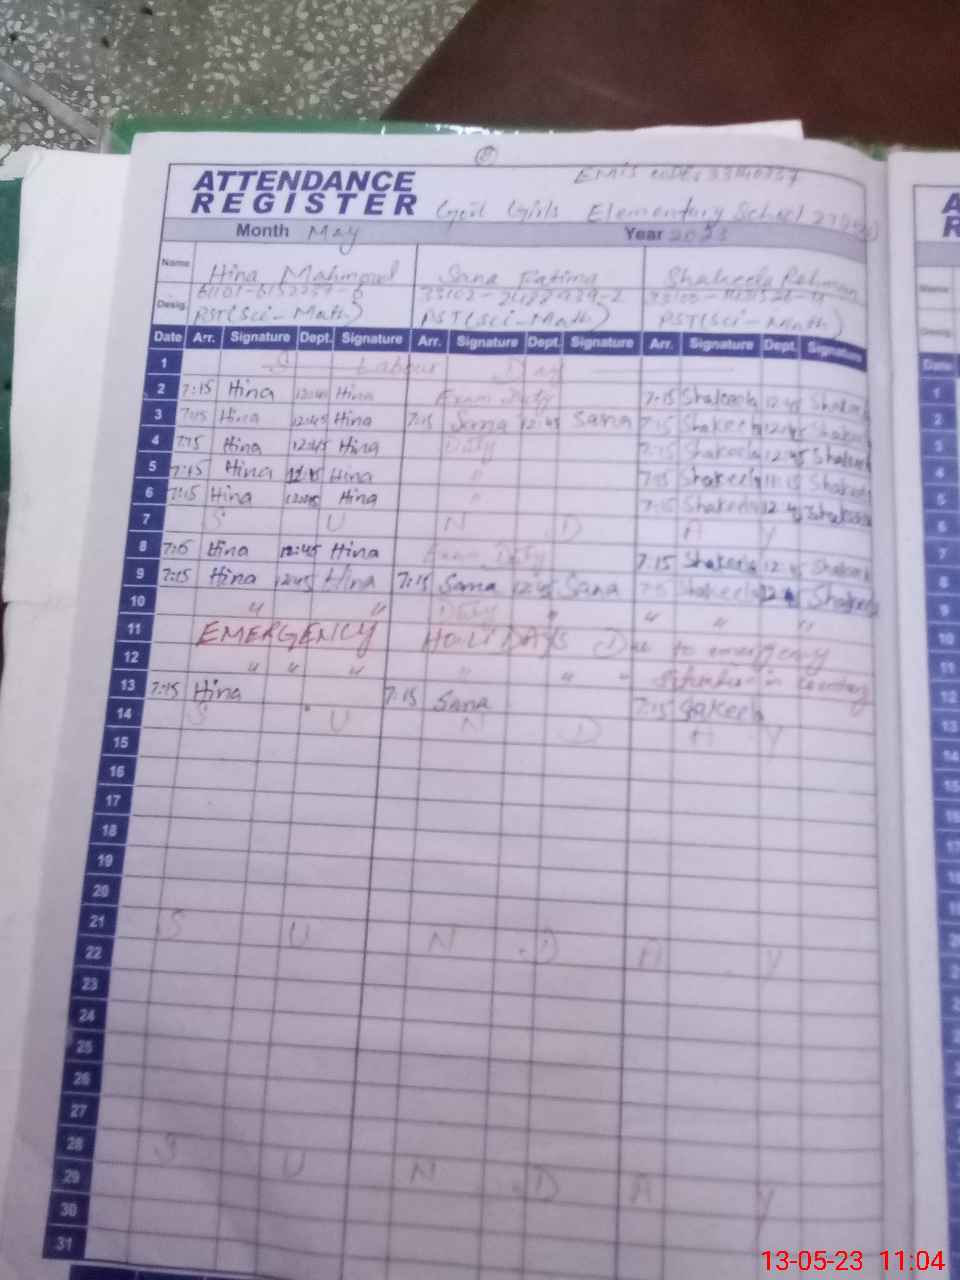 ATTENDANCE
REGISTER
EMIS
Govt Girls Elementary School
Month May Year 2023
Name Hina Mahmood Sana Fatima Shakeela Rehman
Desig. PST(Sci-Math) PST(Sci-Math) PST(Sci-Math)
Date Arr. Signature Dept. Signature Arr. Signature Dept. Signature Arr. Signature Dept. Signature
1 Labour Day
2 7:15 Hina 12:45 Hina Exam Duty 7:15 Shakeela 12:45 Shakeela
3 7:15 Hina 12:45 Hina 7:15 Sana 12:45 Sana 7:15 Shakeela 12:45 Shakeela
4 7:15 Hina 12:45 Hina Duty 7:15 Shakeela 12:45 Shakeela
5 7:15 Hina Hina " 7:15 Shakeela Shakeela
6 7:15 Hina Hina " 7:15 Shakeela 12:45 Shakeela
7 S U N D A Y
8 Hina 12:45 Hina Exam Duty 7:15 Shakeela 12:45 Shakeela
9 7:15 Hina 12:45 Hina 7:15 Sana 12:45 Sana Shakeela Shakeela
10 " " Duty " " " "
11 EMERGENCY HOLIDAYS Due to emergency
12 " " " " " " situation in country
13 7:15 Hina 7:15 Sana 7:15
14 S U N D A Y
15
16
17
18
19
20
21 S U N D A Y
22
23
24
25
26
27
28 S U N D A Y
29
30
31
A
R
Name
Desig.
Date
1
2
3
4
5
6
7
8
9
10
11
12
13
14
13-05-23 11:04